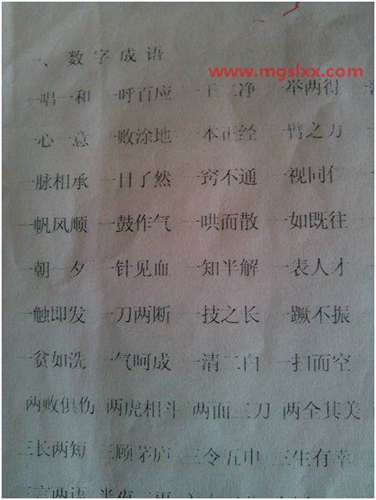 www.mgslxx.com
一、数字成语
一唱一和 一呼百应 一干二净 一举两得
一心一意 一败涂地 一本正经 一臂之力
一脉相承 一目了然 一窍不通 一视同仁
一帆风顺 一鼓作气 一哄而散 一如既往
一朝一夕 一针见血 一知半解 一表人才
一触即发 一刀两断 一技之长 一蹶不振
一贫如洗 一气呵成 一清二白 一扫而空
两败俱伤 两虎相斗 两面三刀 两全其美
三长两短 三顾茅庐 三令五申 三生有幸
三言两语